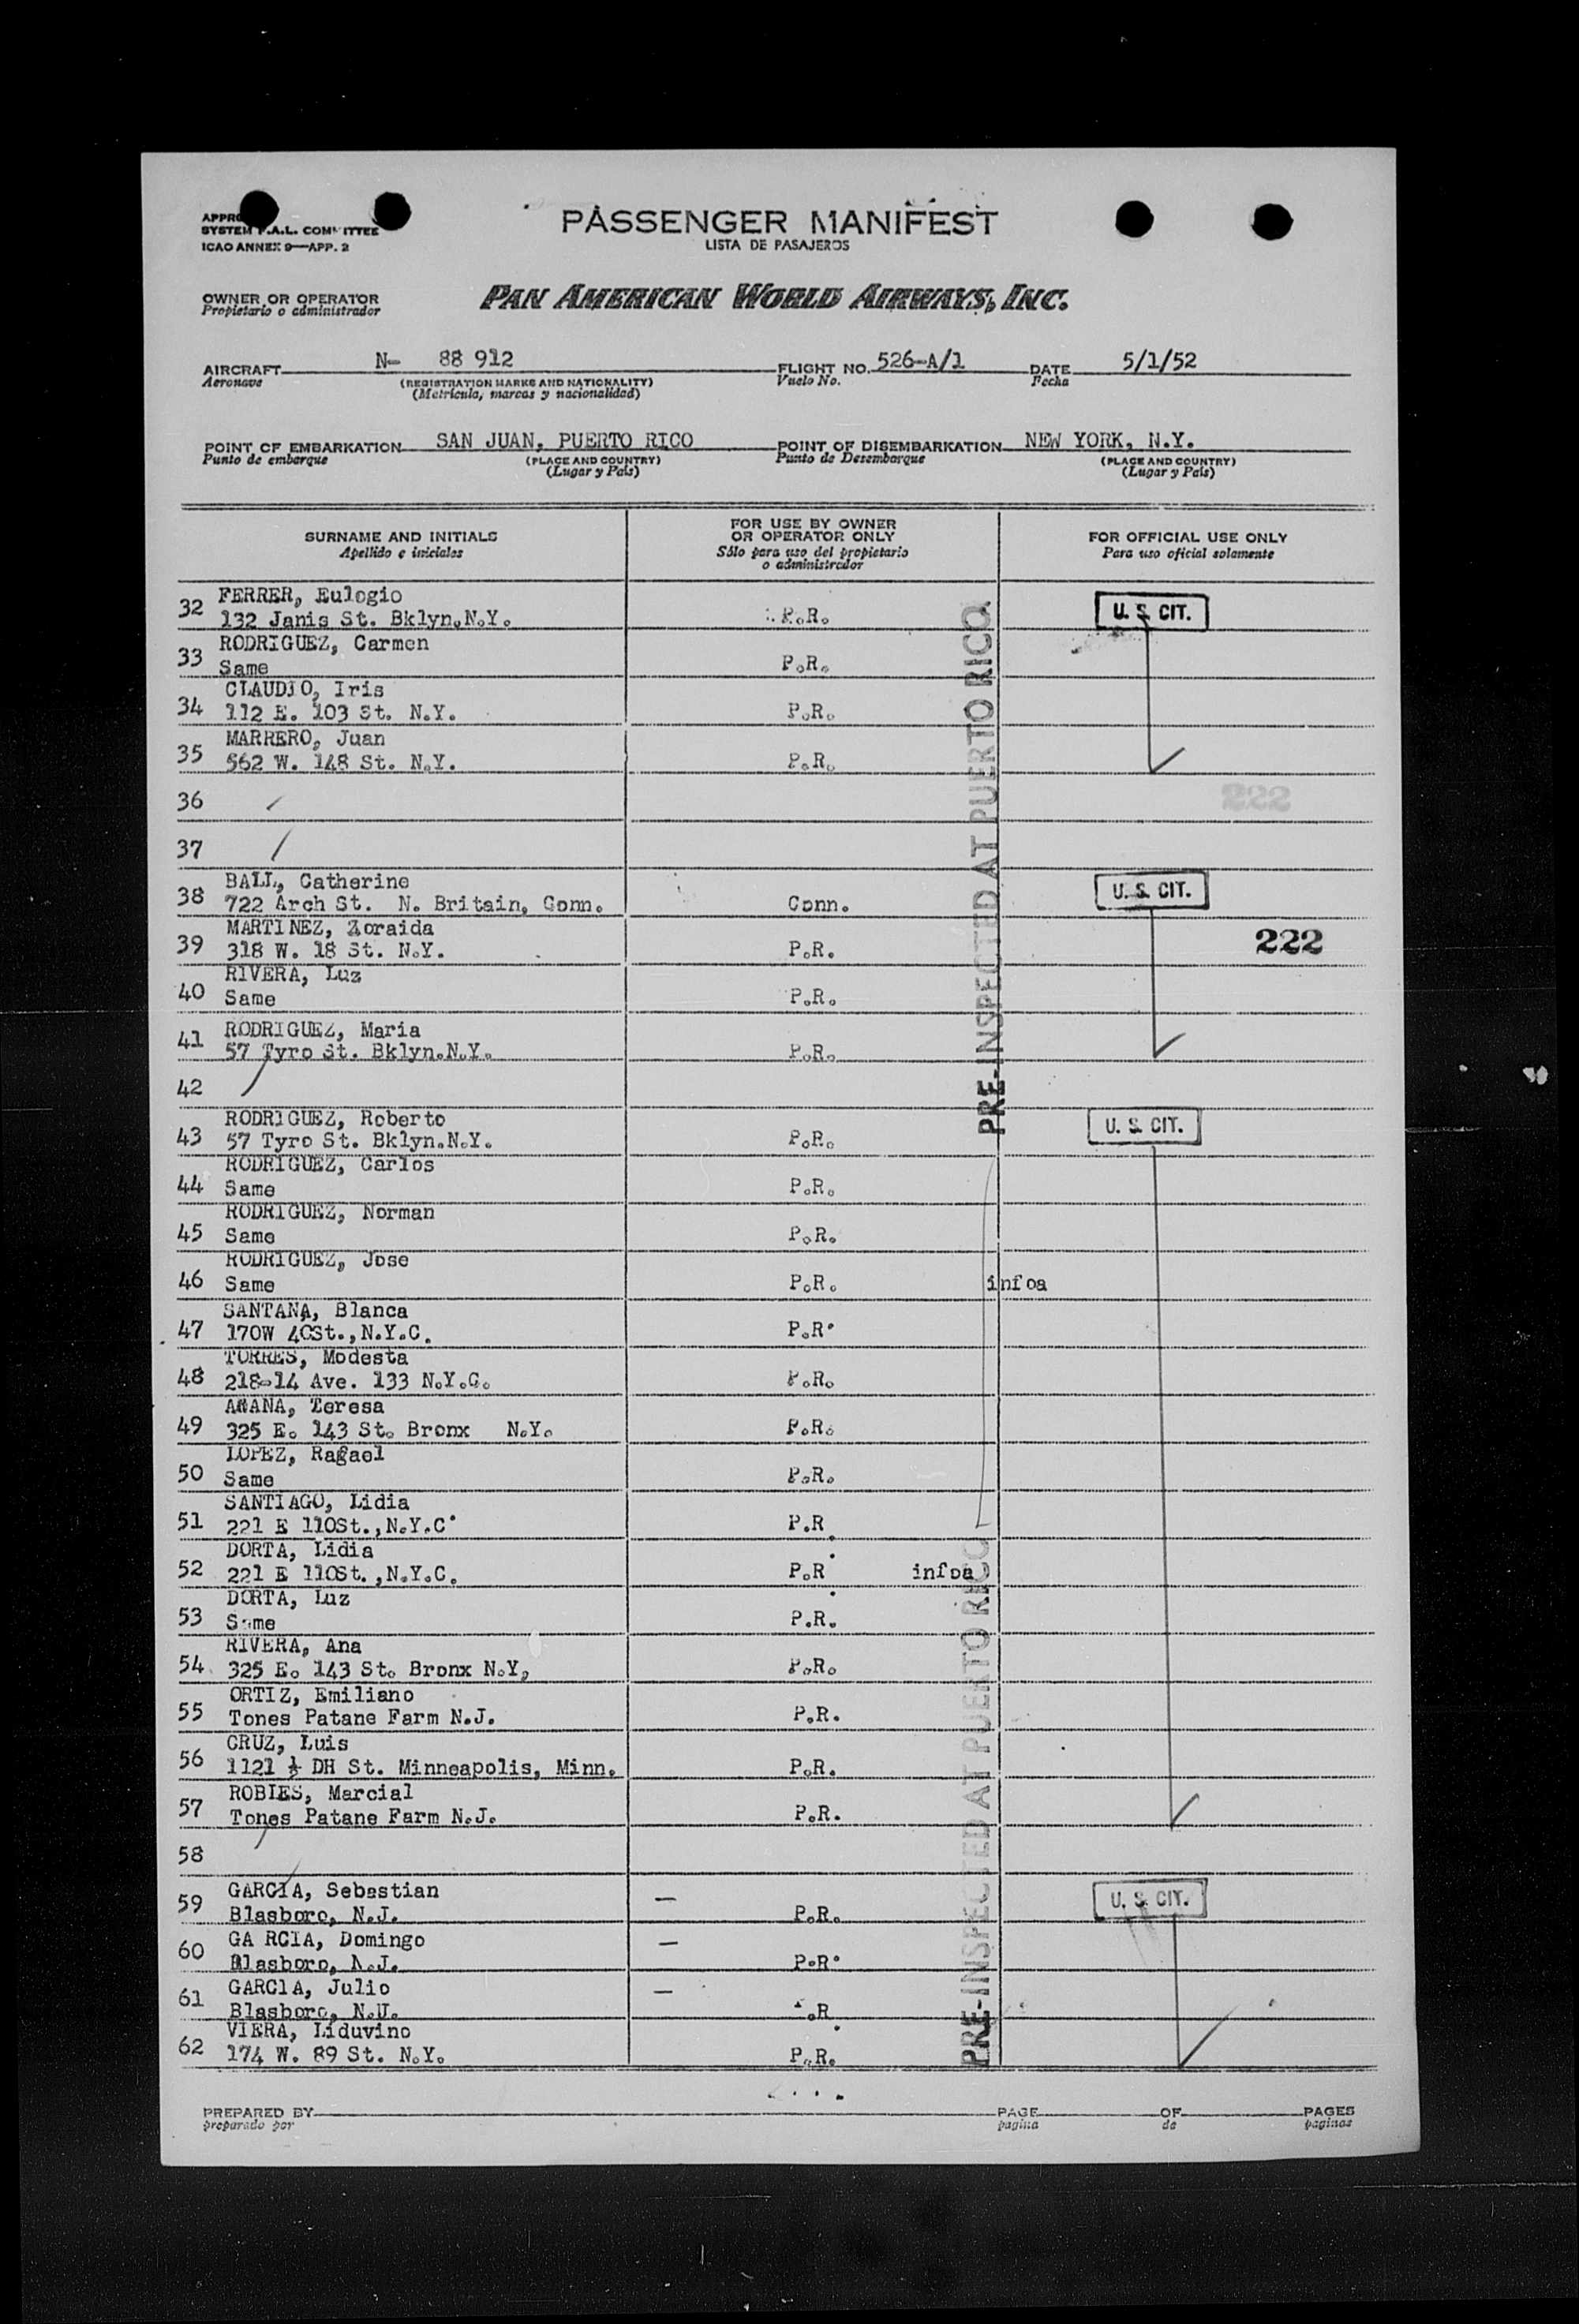 SYSTEM F.A.L. COMMITTEE
ICAO ANNEX 9—APP. 2
PASSENGER MANIFEST
LISTA DE PASAJEROS
OWNER OR OPERATOR
Propietario o administrador
PAN AMERICAN WORLD AIRWAYS, INC.
AIRCRAFT N- 88 912 FLIGHT NO. 526-A/1 DATE 5/1/52
Aeronave (REGISTRATION MARKS AND NATIONALITY) Vuelo No. Fecha
(Matricula, marcas y nacionalidad)
POINT OF EMBARKATION SAN JUAN, PUERTO RICO POINT OF DISEMBARKATION NEW YORK, N.Y.
Punto de embarque (PLACE AND COUNTRY) Punto de Desembarque (PLACE AND COUNTRY)
(Lugar y País) (Lugar y País)
SURNAME AND INITIALS
Apellido e iniciales
FOR USE BY OWNER
OR OPERATOR ONLY
Sólo para uso del propietario
o administrador
FOR OFFICIAL USE ONLY
Para uso oficial solamente
32 FERRER, Eulogio
132 Janis St. Bklyn.N.Y. P.R. U. S. CIT.
33 RODRIGUEZ, Carmen
Same P.R.
34 CLAUDIO, Iris
112 E. 103 St. N.Y. P.R.
35 MARRERO, Juan
562 W. 148 St. N.Y. P.R.
36 222
37
38 BALL, Catherine
722 Arch St. N. Britain, Conn. Conn. U. S. CIT.
39 MARTINEZ, Zoraida
318 W. 18 St. N.Y. P.R. 222
40 RIVERA, Luz
Same P.R.
41 RODRIGUEZ, Maria
57 Tyro St. Bklyn.N.Y. P.R.
42
PRE-INSPECTED AT PUERTO RICO
43 RODRIGUEZ, Roberto
57 Tyro St. Bklyn.N.Y. P.R. U. S. CIT.
44 RODRIGUEZ, Carlos
Same P.R.
45 RODRIGUEZ, Norman
Same P.R.
46 RODRIGUEZ, Jose
Same P.R. infoa
47 SANTANA, Blanca
170W 40St.,N.Y.C. P.R.
48 TORRES, Modesta
218-14 Ave. 133 N.Y.C. P.R.
49 Teresa
325 E. 143 St. Bronx N.Y. P.R.
50 LOPEZ, Ragael
Same P.R.
51 SANTIAGO, Lidia
221 E 110St.,N.Y.C. P.R.
52 DORTA, Lidia
221 E 110St.,N.Y.C. P.R. infoa
53 DORTA, Luz
Same P.R.
54 RIVERA, Ana
325 E. 143 St. Bronx N.Y, P.R.
55 ORTIZ, Emiliano
Tones Patane Farm N.J. P.R.
56 CRUZ, Luis
1121 ½ DH St. Minneapolis, Minn. P.R.
57 ROBLES, Marcial
Tones Patane Farm N.J. P.R.
58
59 GARCIA, Sebastian
Blasboro, N.J. P.R. U. S. CIT.
60 GA RCIA, Domingo
Blasboro, N.J. P.R.
61 GARCIA, Julio
Blasboro, N.J. .R
62 VIERA, Liduvino
174 W. 89 St. N.Y. P.R.
PRE-INSPECTED AT PUERTO RICO
PREPARED BY PAGE OF PAGES
preparado por pagina de paginas